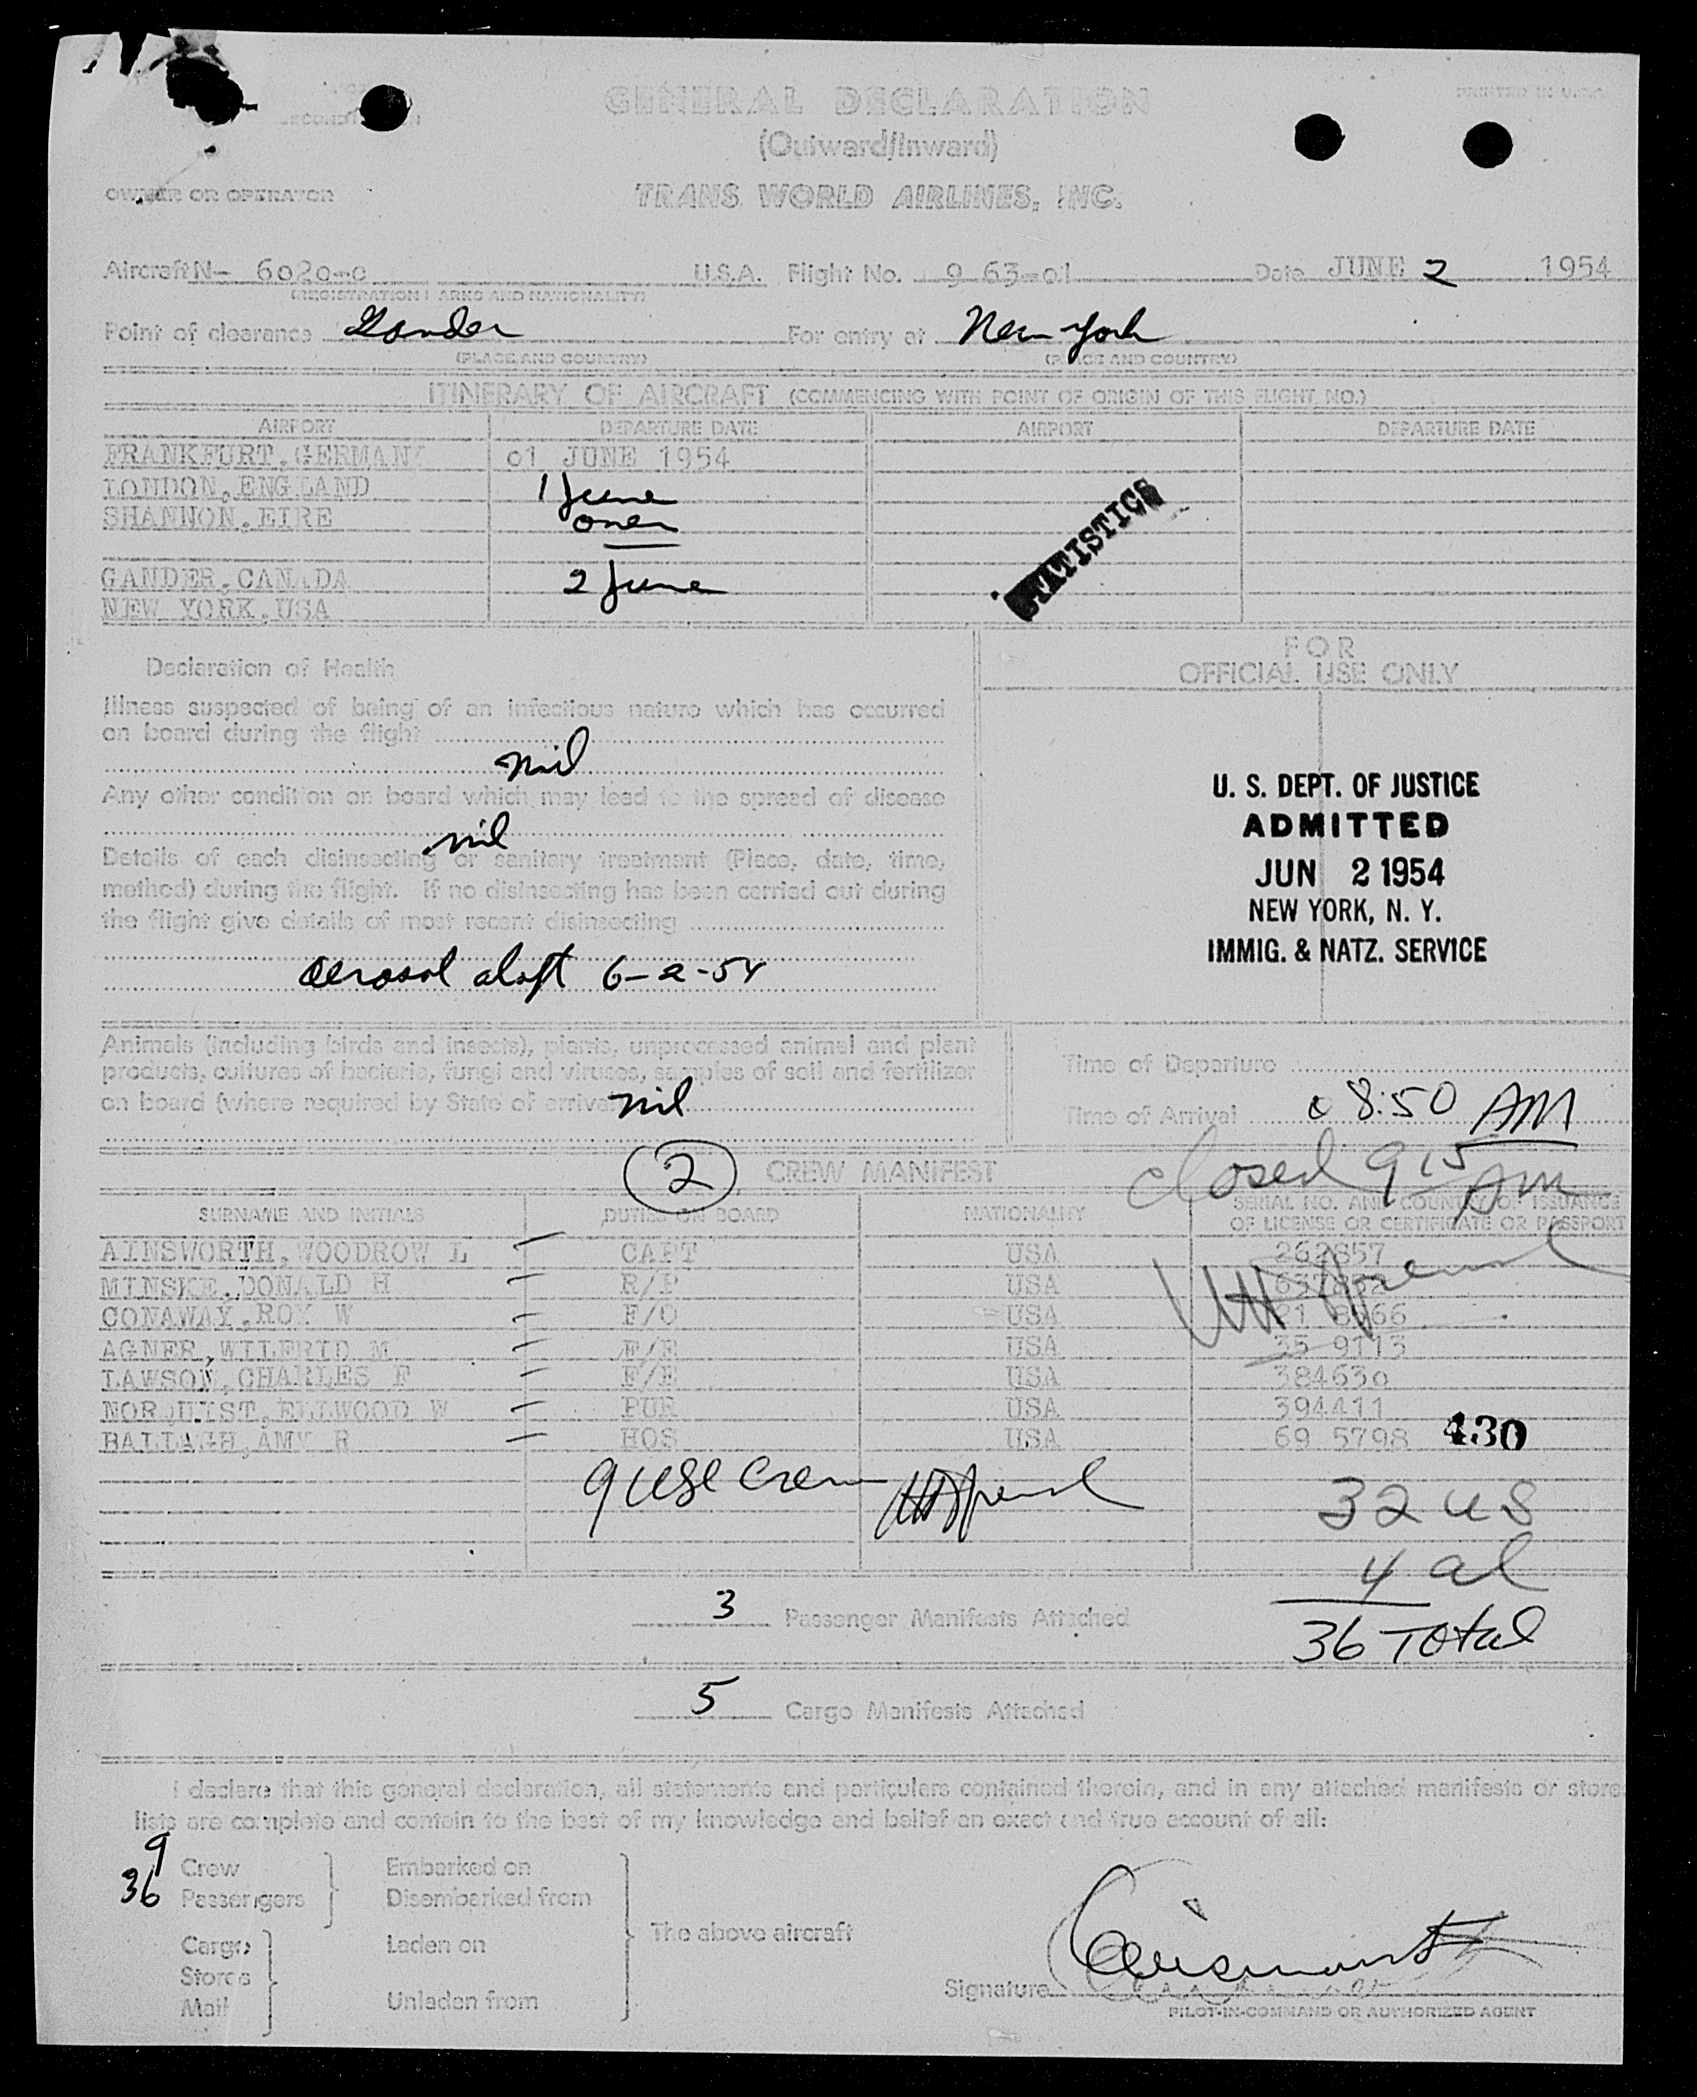 GENERAL DECLARATION
PRINTED IN U.S.A.
(Outward/Inward)
OWNER OR OPERATOR
TRANS WORLD AIRLINES, INC.
Aircraft N- 6020-C U.S.A. Flight No. 963-01 Date JUNE 2 1954
(REGISTRATION MARKS AND NATIONALITY)
Point of clearance Gander For entry at New York
(PLACE AND COUNTRY) (PLACE AND COUNTRY)
ITINERARY OF AIRCRAFT (COMMENCING WITH POINT OF ORIGIN OF THIS FLIGHT NO.)
AIRPORT DEPARTURE DATE AIRPORT DEPARTURE DATE
FRANKFURT, GERMANY 01 JUNE 1954
LONDON, ENGLAND 1 June
SHANNON, EIRE over
STATISTICS
GANDER, CANADA 2 June
NEW YORK, USA
FOR
OFFICIAL USE ONLY
Declaration of Health
Illness suspected of being of an infectious nature which has occurred
on board during the flight
nil
Any other condition on board which may lead to the spread of disease
nil
Details of each disinsecting or sanitary treatment (Place, date, time,
method) during the flight. If no disinsecting has been carried out during
the flight give details of most recent disinsecting
aerosol aloft 6-2-54
U. S. DEPT. OF JUSTICE
ADMITTED
JUN 2 1954
NEW YORK, N. Y.
IMMIG. & NATZ. SERVICE
Animals (including birds and insects), plants, unprocessed animal and plant
products, cultures of bacteria, fungi and viruses, samples of soil and fertilizer
on board (where required by State of arrival) nil
Time of Departure
Time of Arrival 08:50 AM
closed 9 15 AM
2 CREW MANIFEST
SURNAME AND INITIALS DUTIES ON BOARD NATIONALITY SERIAL NO. AND COUNTRY OF ISSUANCE
OF LICENSE OR CERTIFICATE OR PASSPORT
AINSWORTH, WOODROW L CAPT USA 262857
MINSKE, DONALD H R/P USA
CONAWAY, ROY W F/O USA
AGNER, WILFRID M F/E USA 35 9113
LAWSON, CHARLES F F/E USA 384630
NORQUIST, ELLWOOD W PUR USA 394411
BALLAGH, AMY R HOS USA 69 5798
430
9 USC Crew
32 US
4 al
36 Total
3 Passenger Manifests Attached
5 Cargo Manifests Attached
I declare that this general declaration, all statements and particulars contained therein, and in any attached manifests or stores
lists are complete and contain to the best of my knowledge and belief an exact and true account of all:
9 Crew Embarked on
36 Passengers Disembarked from
The above aircraft
Cargo Laden on
Stores
Mail Unladen from
Signature
PILOT-IN-COMMAND OR AUTHORIZED AGENT